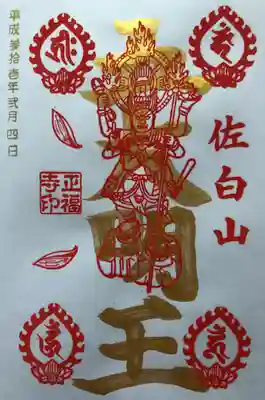 佐白山
明王
正福
寺印
平成参拾壱年弐月四日